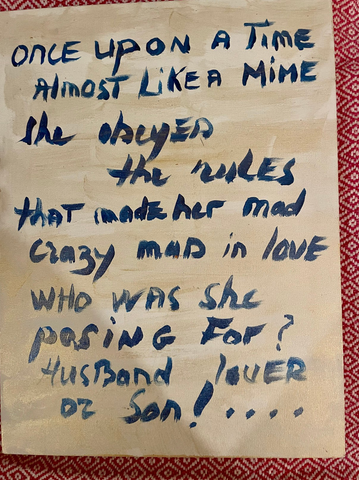 ONCE UPON A TIME
AlMOST LiKE A MiME
She obeyED
the rulES
that made her mad
crazy mad in lovE
WHO WAS She
posiNG FoR?
HusBand lovER
or Son!....